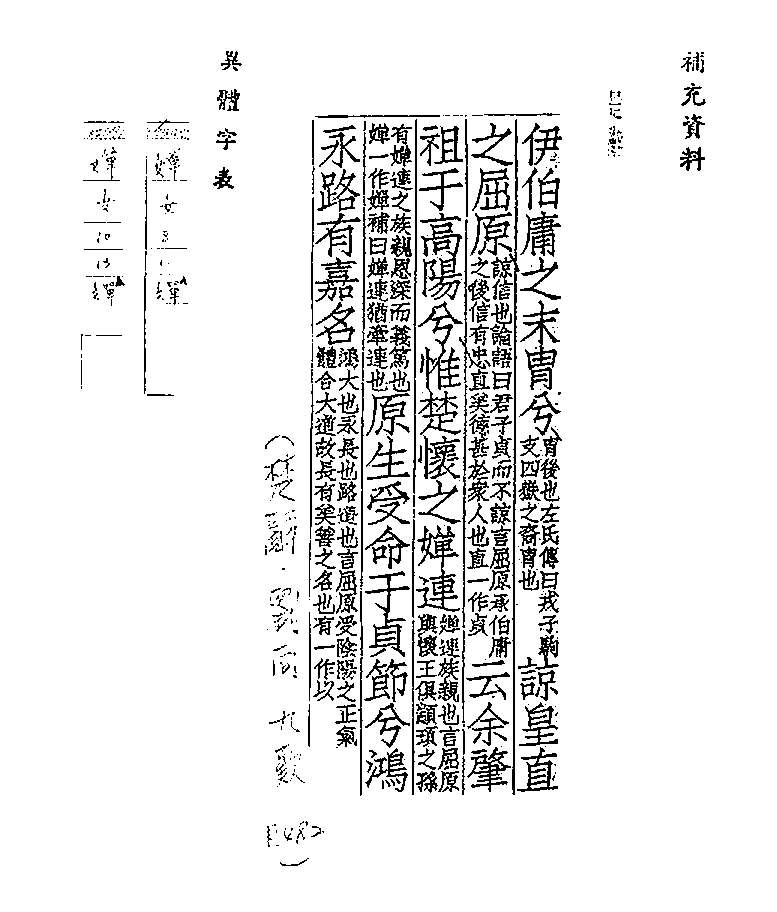 補充資料
伊伯庸之末胄兮胄後也左氏傳曰戎子駒支四嶽之裔胄也諒皇直
之屈原諒信也論語曰君子貞而不諒言屈原承伯庸之後信有忠直矣德甚於衆人也直一作貞云余肇
祖于高陽兮惟楚懷之嬋連嬋連族親也言屈原與懷王俱顓頊之孫
有嬋連之族親恩深而義篤也嬋一作嬋補曰嬋連猶牽連也原生受命于貞節兮鴻
永路有嘉名鴻大也永長也路道也言屈原受陰陽之正氣體合大道故長有矣善之名也有一作以
(楚辭·劉向 九歎
P.482
)
異體字表
嬋
女
嬋
嬋
女
10
13
嬋